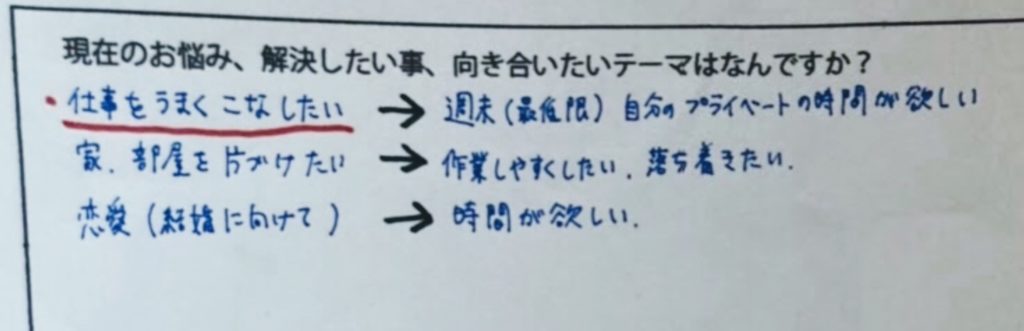 現在のお悩み、解決したい事、向き合いたいテーマはなんですか？
・仕事をうまくこなしたい → 週末(最低限)自分のプライベートの時間が欲しい
家、部屋を片づけたい → 作業しやすくしたい、落ち着きたい。
恋愛(結婚に向けて) → 時間が欲しい。